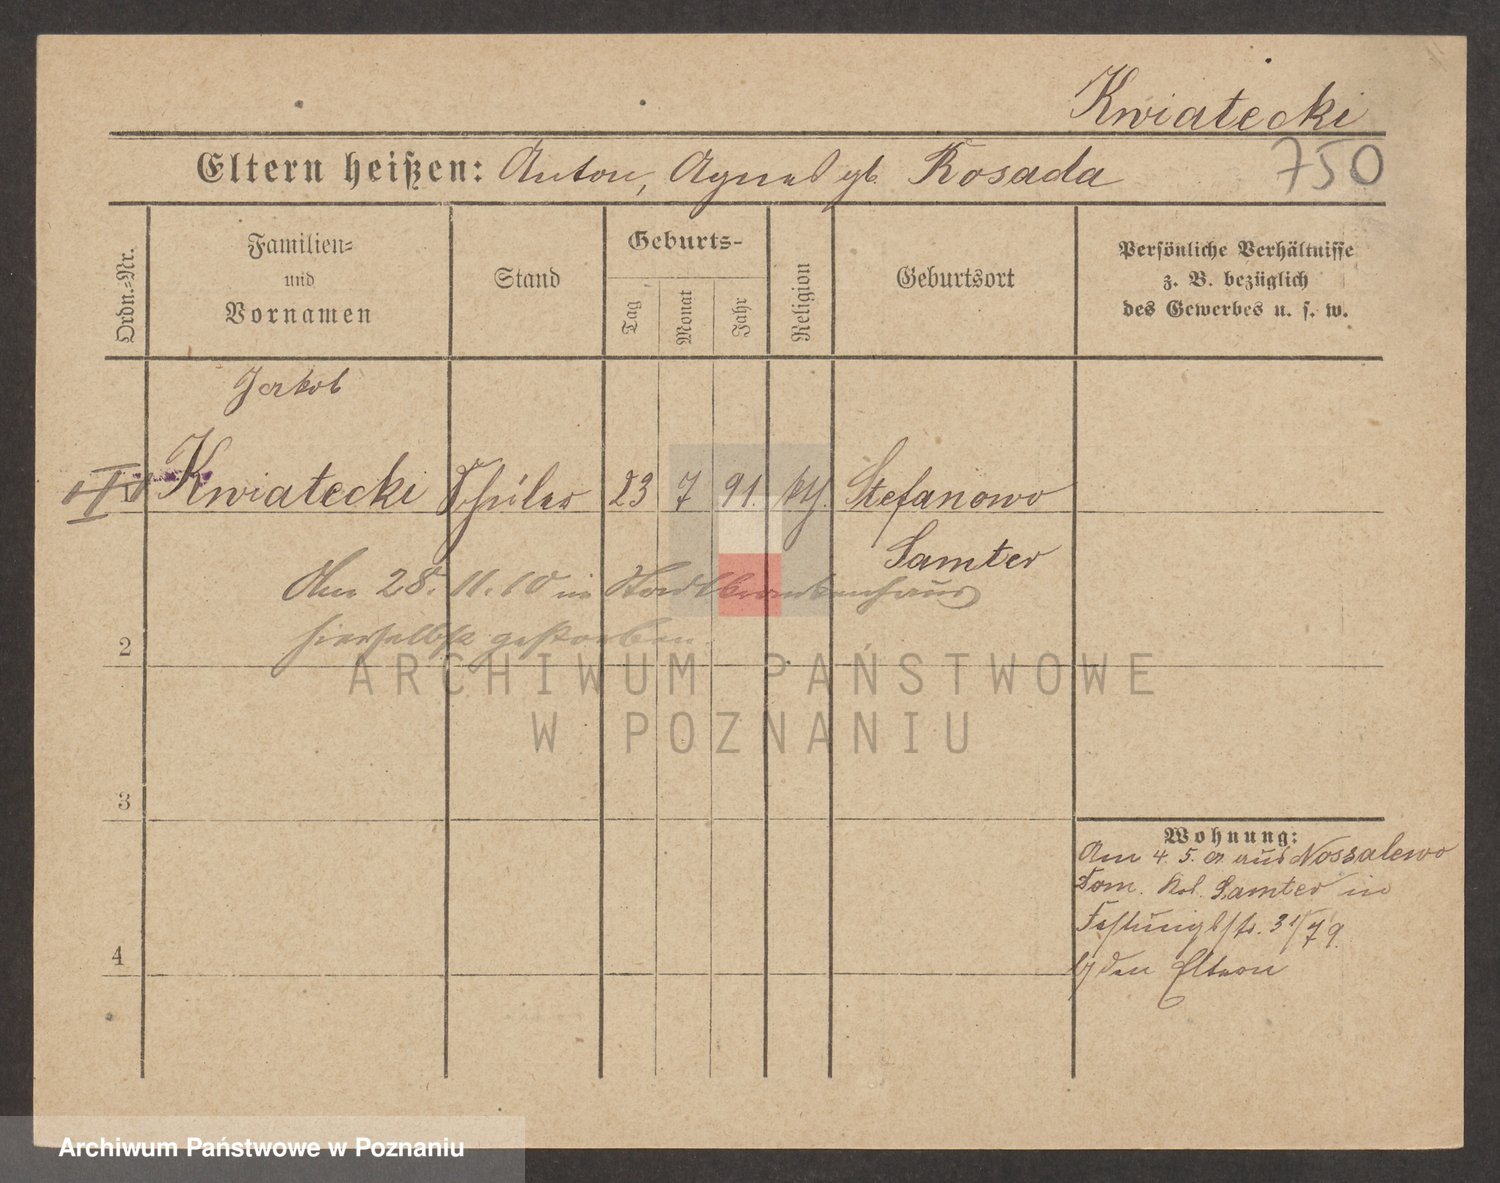 Kwiatecki
Eltern heißen: Anton, Agnes gb. Rosada
750
Ordn.-Nr.
Familien-
und
Vornamen
Stand
Geburts-
Tag
Monat
Jahr
Religion
Geburtsort
Persönliche Verhältnisse
z. B. bezüglich
des Gewerbes u. s. w.
Jakob
Kwiatecki Schüler 23 7 91. kth. Stefanowo
Samter
Am 28. 11. 10 im Stadtkrankenhaus
hierselbst gestorben.
2
ARCHIWUM PAŃSTWOWE
W POZNANIU
3
Wohnung:
Am 4. 5. aus Nossalewo
Dom. Samter in
Festungsstr. 31/79
bei den Eltern
4
Archiwum Państwowe w Poznaniu